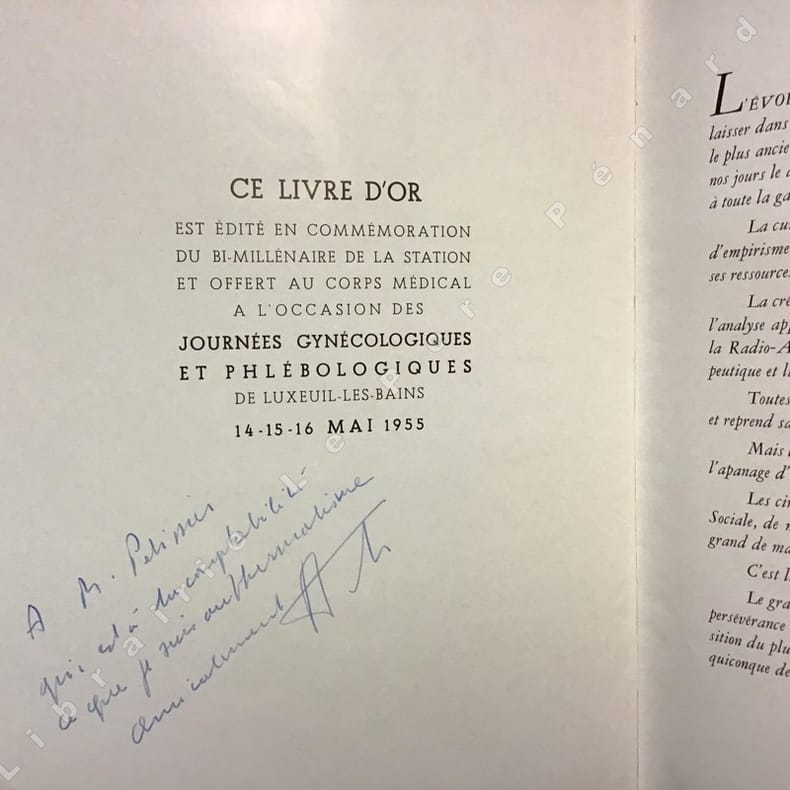 CE LIVRE D'OR
EST ÉDITÉ EN COMMÉMORATION
DU BI-MILLÉNAIRE DE LA STATION
ET OFFERT AU CORPS MÉDICAL
A L'OCCASION DES
JOURNÉES GYNÉCOLOGIQUES
ET PHLÉBOLOGIQUES
DE LUXEUIL-LES-BAINS
14-15-16 MAI 1955
A M. Pelissier
qui est à la comptabilité
ce que je suis au thermalisme
amicalement
L'ÉVOL
laisser dans
le plus ancie
nos jours le
à toute la ga
La cu
d'empirisme
ses ressource
La cré
l'analyse app
la Radio-A
peutique et l
Toutes
et reprend sa
Mais
l'apanage d'
Les cin
Sociale, de
grand de ma
C'est l
Le gra
persévérance
sition du plu
quiconque de
Librairie Le Père Pénard